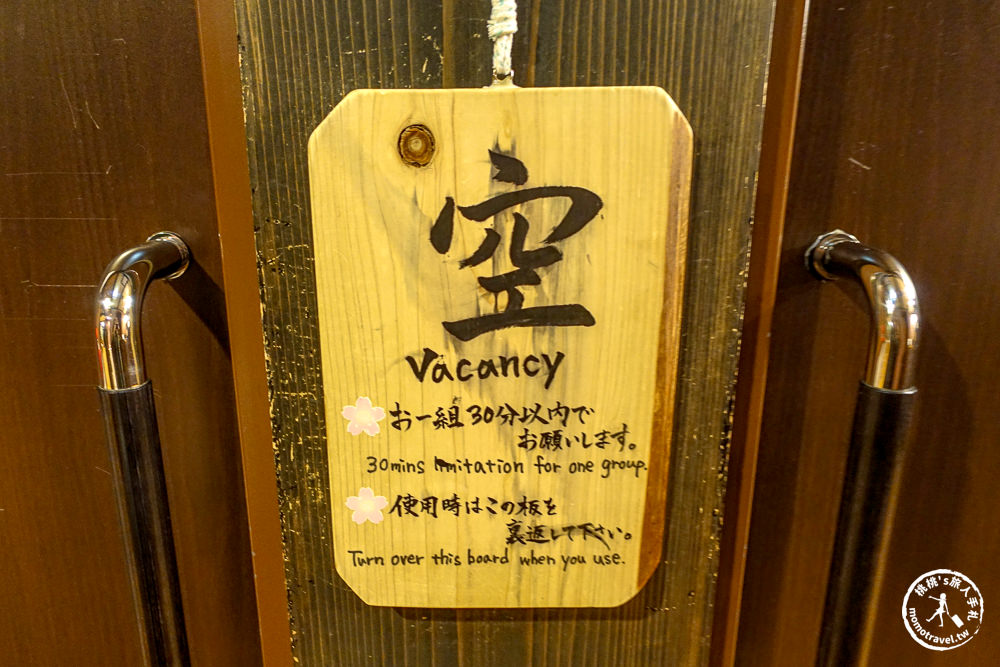 空
Vacancy
お一組30分以内で
お願いします。
30mins limitation for one group.
使用時はこの板を
裏返して下さい。
Turn over this board when you use.
桃桃's旅人手札
momotravel.tw